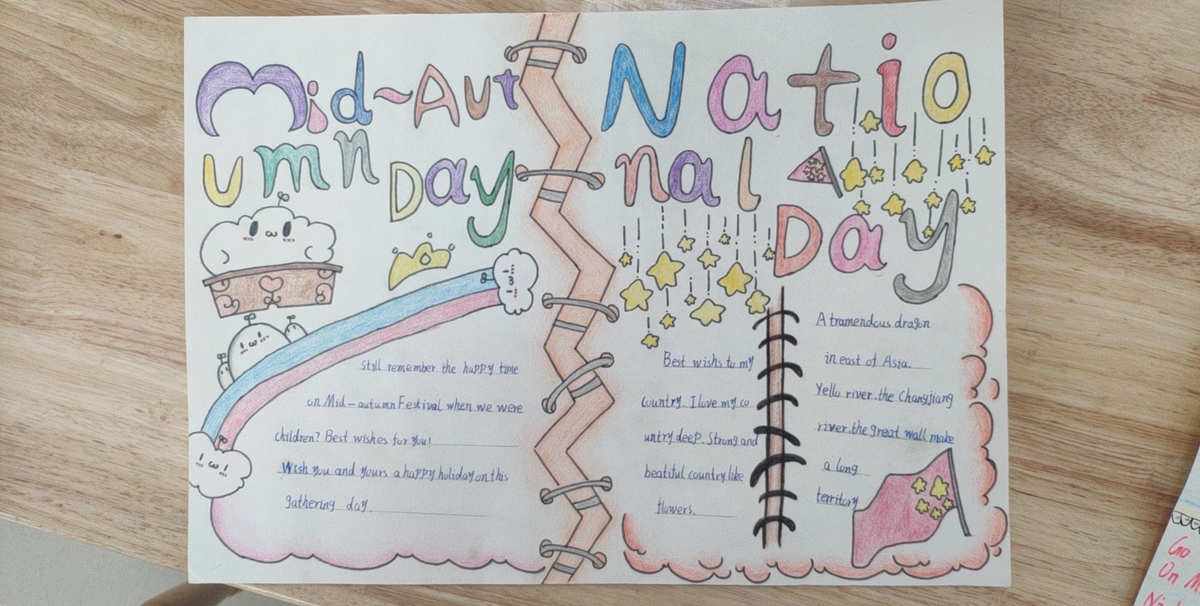 Mid-Aut
umn Day
still remember the happy time
on Mid-autumn Festival when we were
children? Best wishes for you!
Wish you and yours a happy holiday on this
gathering day
Natio
nal
Day
Best wishes to my
country. I love my co
untry deep. Strong and
beatiful country like
flowers.
A tramendous dragon
in east of Asia.
Yello river. the Changjiang
river. the great wall make
a long
territory
Go
On